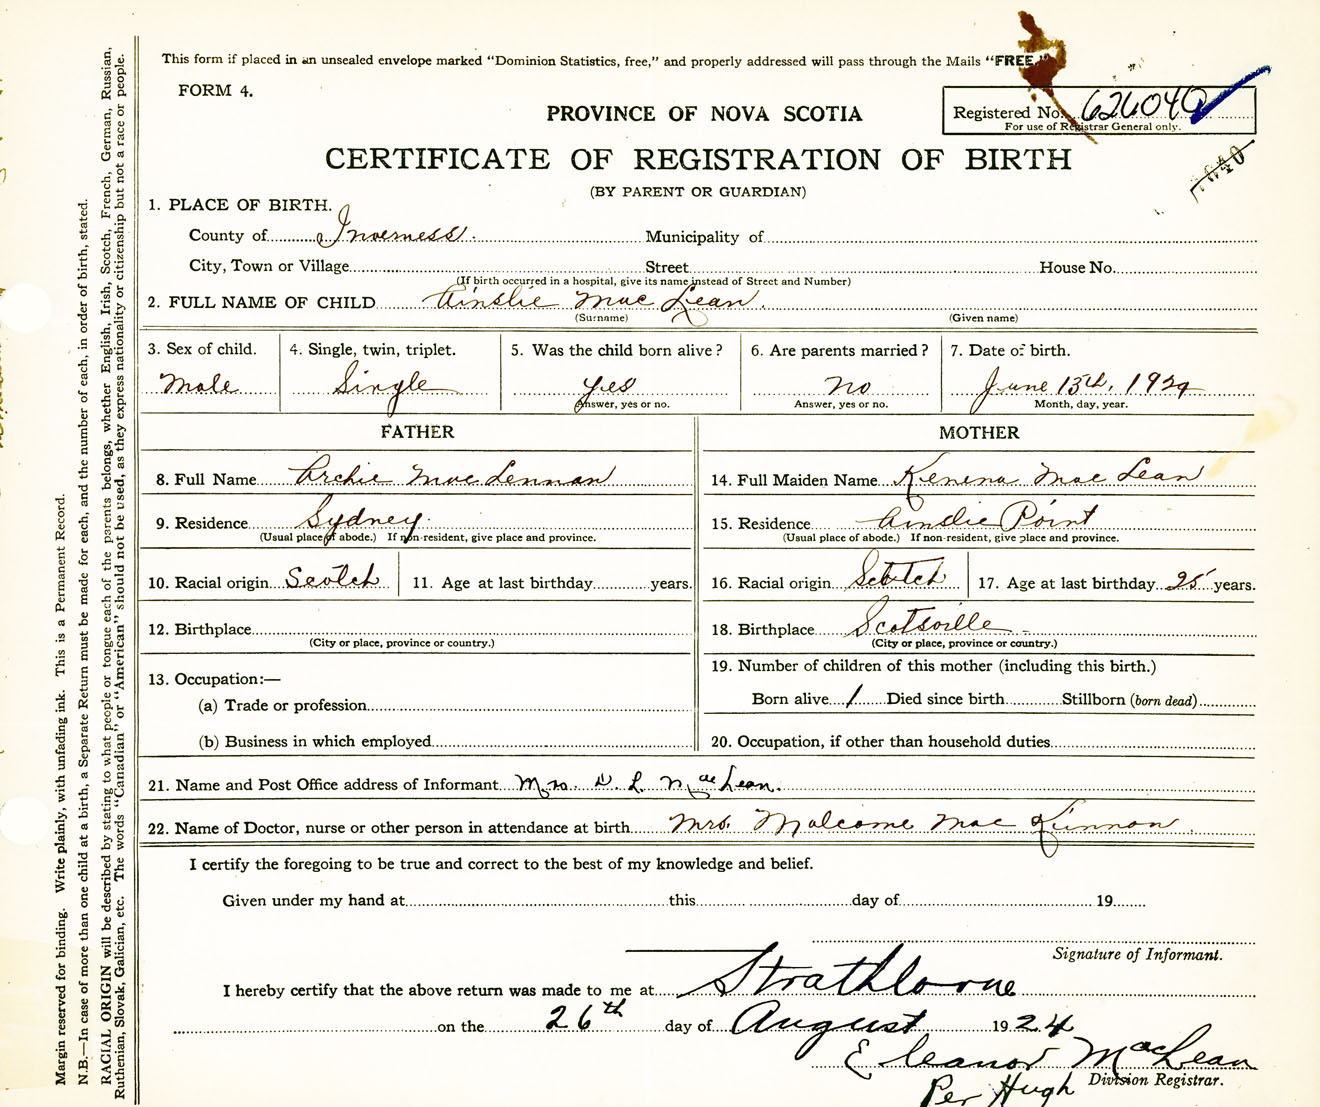 This form if placed in an unsealed envelope marked “Dominion Statistics, free,” and properly addressed will pass through the Mails “FREE.”
FORM 4.
PROVINCE OF NOVA SCOTIA
Registered No. 626040
For use of Registrar General only.
CERTIFICATE OF REGISTRATION OF BIRTH
(BY PARENT OR GUARDIAN)
1. PLACE OF BIRTH.
County of Inverness. Municipality of
City, Town or Village Street House No.
(If birth occurred in a hospital, give its name instead of Street and Number)
2. FULL NAME OF CHILD Ainslie Mac Lean.
(Surname) (Given name)
3. Sex of child. 4. Single, twin, triplet. 5. Was the child born alive? 6. Are parents married? 7. Date of birth.
Male Single yes no June 13th, 1924
Answer, yes or no. Answer, yes or no. Month, day, year.
FATHER MOTHER
8. Full Name Archie Mac Lennan 14. Full Maiden Name Kenena Mac Lean
9. Residence Sydney. 15. Residence Ainslie Point
(Usual place of abode.) If non-resident, give place and province. (Usual place of abode.) If non-resident, give place and province.
10. Racial origin Scotch 11. Age at last birthday years. 16. Racial origin Scotch 17. Age at last birthday 25 years.
12. Birthplace 18. Birthplace Scotsville
(City or place, province or country.) (City or place, province or country.)
19. Number of children of this mother (including this birth.)
13. Occupation:—
Born alive 1 Died since birth Stillborn (born dead)
(a) Trade or profession
(b) Business in which employed 20. Occupation, if other than household duties
21. Name and Post Office address of Informant Mrs. D. L. MacLean.
22. Name of Doctor, nurse or other person in attendance at birth Mrs. Malcome Mac Kinnon.
I certify the foregoing to be true and correct to the best of my knowledge and belief.
Given under my hand at this day of 19
Signature of Informant.
I hereby certify that the above return was made to me at Strathlorne
on the 26th day of August 1924
Eleanor MacLean
Division Registrar.
Per Hugh
Margin reserved for binding. Write plainly, with unfading ink. This is a Permanent Record.
N.B.—In case of more than one child at a birth, a Separate Return must be made for each, and the number of each, in order of birth, stated.
RACIAL ORIGIN will be described by stating to what people or tongue each of the parents belongs, whether English, Irish, Scotch, French, German, Russian,
Ruthenian, Slovak, Galician, etc. The words “Canadian” or “American” should not be used, as they express nationality or citizenship but not a race or people.